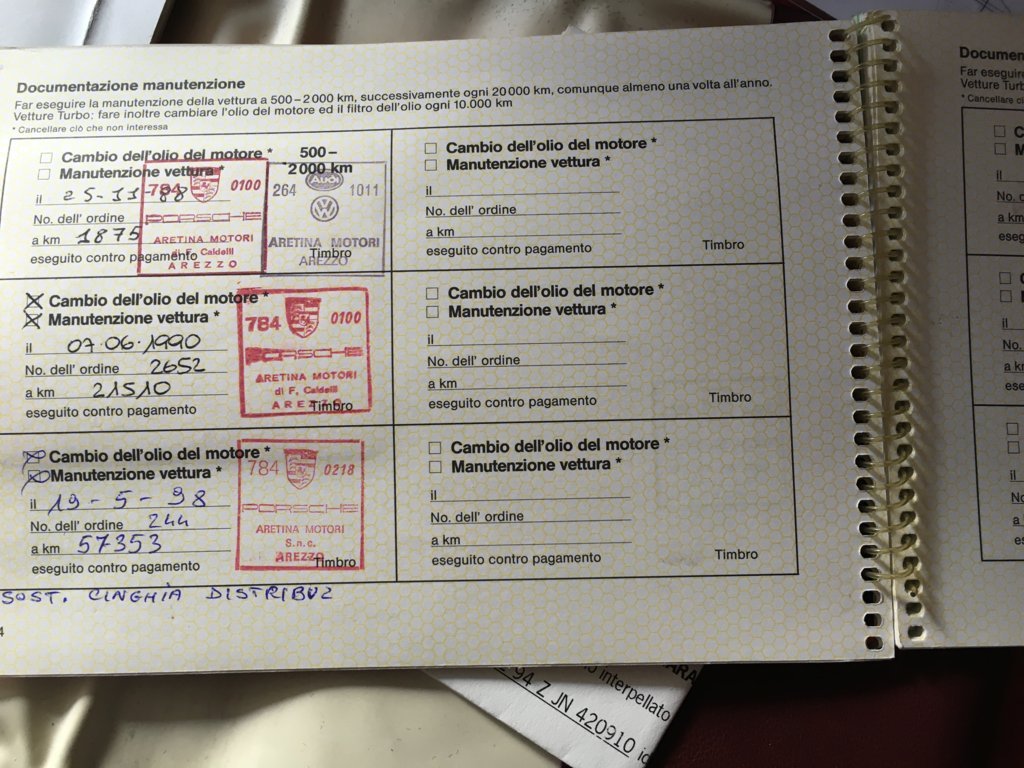 Documentazione manutenzione
Far eseguire la manutenzione della vettura a 500–2000 km, successivamente ogni 20000 km, comunque almeno una volta all'anno.
Vetture Turbo: fare inoltre cambiare l'olio del motore ed il filtro dell'olio ogni 10.000 km
* Cancellare ciò che non interessa
Cambio dell'olio del motore * 500–
Manutenzione vettura * 2000 km
il 25-11-88
No. dell' ordine
a km 1875
eseguito contro pagamento
Timbro
784 0100
PORSCHE
ARETINA MOTORI
di F. Caldelli
AREZZO
Audi
264 1011
ARETINA MOTORI
AREZZO
Cambio dell'olio del motore *
Manutenzione vettura *
il
No. dell' ordine
a km
eseguito contro pagamento
Timbro
Cambio dell'olio del motore *
Manutenzione vettura *
il 07.06.1990
No. dell' ordine 2652
a km 21510
eseguito contro pagamento
Timbro
784 0100
PORSCHE
ARETINA MOTORI
di F. Caldelli
AREZZO
Cambio dell'olio del motore *
Manutenzione vettura *
il
No. dell' ordine
a km
eseguito contro pagamento
Timbro
Cambio dell'olio del motore *
Manutenzione vettura *
il 19-5-98
No. dell' ordine 244
a km 57353
eseguito contro pagamento
Timbro
784 0218
PORSCHE
ARETINA MOTORI
S.n.c.
AREZZO
Cambio dell'olio del motore *
Manutenzione vettura *
il
No. dell' ordine
a km
eseguito contro pagamento
Timbro
SOST. CINGHIA DISTRIBUZ
4
Documen
Far eseguire
Vetture Turb
* Cancellare ciò
il
No. d
a km
eseg
il
No.
a k
ese
il
No
a
es
interpellato
94 Z JN 420910